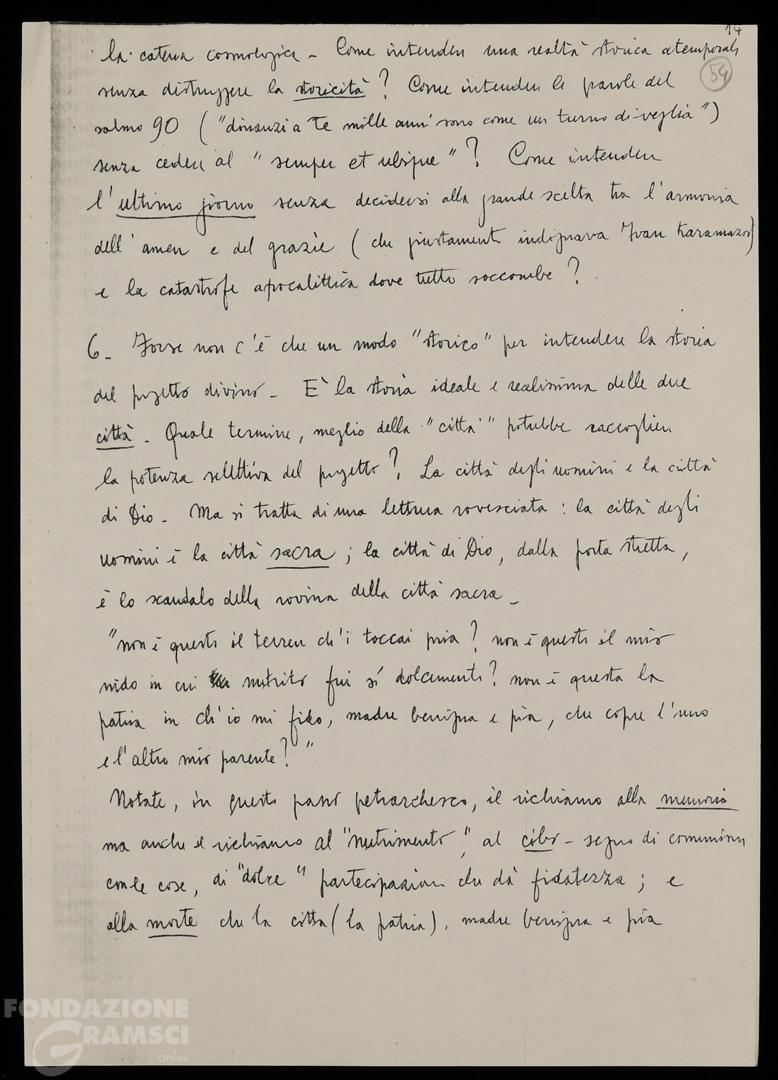 14
54
la catena cosmologica - Come intendere una realtà storica atemporale
senza distruggere la storicità? Come intendere le parole del
salmo 90 ("dinanzi a Te mille anni sono come un turno di veglia")
senza cedere al "semper et ubique"? Come intendere
l'ultimo giorno senza decidersi alla grande scelta tra l'armonia
dell'amen e del grazie (che giustamente indignava Ivan Karamazov)
e la catastrofe apocalittica dove tutto soccombe?
6- Forse non c'è che un modo "storico" per intendere la storia
del progetto divino - E' la storia ideale e realissima delle due
città. Quale termine, meglio della "città" potrebbe raccogliere
la potenza selettiva del progetto? La città degli uomini e la città
di Dio - Ma si tratta di una lettura rovesciata: la città degli
uomini è la città sacra; la città di Dio, dalla porta stretta,
è lo scandalo della rovina della città sacra -
"non è questo il terren ch'i toccai pria? non è questo il mio
nido in cui nutrito fui sì dolcemente? non è questa la
patria in ch'io mi fido, madre benigna e pia, che copre l'uno
e l'altro mio parente?"
Notate, in questo passo petrarchesco, il richiamo alla memoria
ma anche il richiamo al "nutrimento", al cibo - segno di comunione
con le cose, di "dolce" partecipazione che dà fidatezza; e
alla morte che la città (la patria), madre benigna e pia
FONDAZIONE
GRAMSCI
onlus